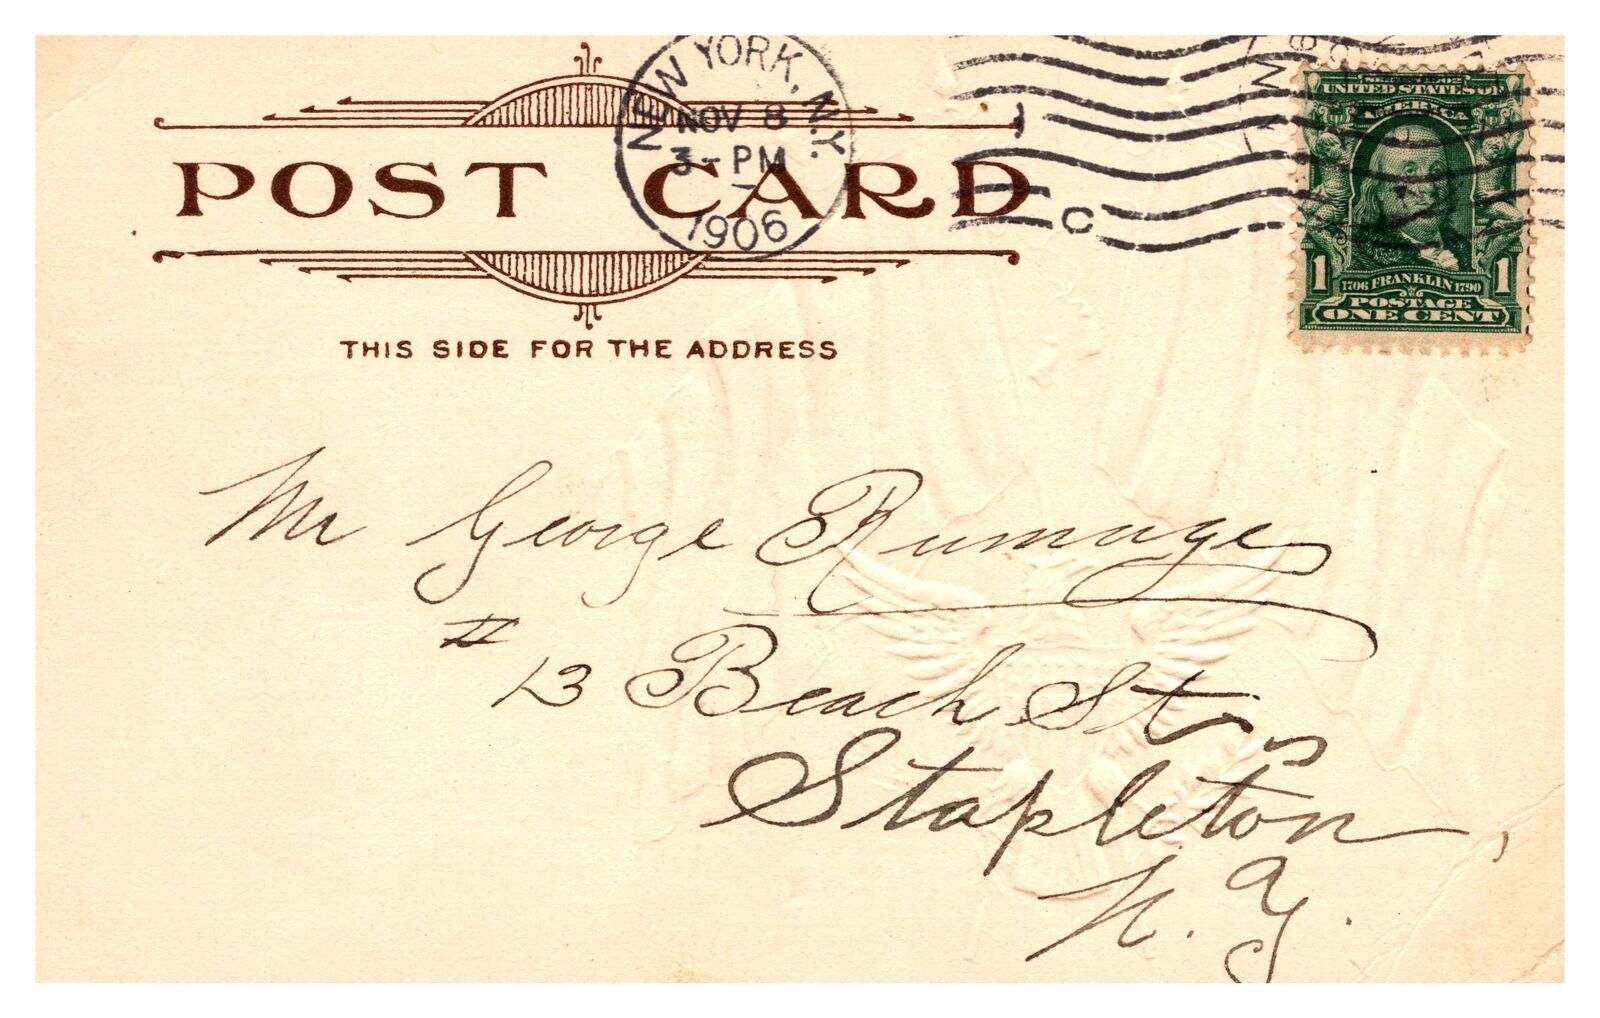 NEW YORK, N.Y.
NOV 8
3 - PM
1906
C
POST CARD
THIS SIDE FOR THE ADDRESS
UNITED STATES OF
AMERICA
1 1
1706 FRANKLIN 1790
POSTAGE
ONE CENT
Mr George Rumage
# 13 Beach St,
Stapleton,
N. Y.